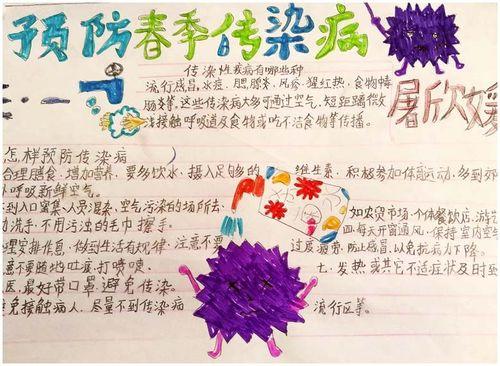 预防春季传染病
传染性疾病有哪些种
流行感冒,水痘,腮腺炎,风疹,猩红热,食物性
肠炎等。这些传染病大多可通过空气,短距离微
接触呼吸道及食物或吃不洁食物等传播。
怎样预防传染病
合理膳食,增加营养,要多饮水,摄入足够的维生素,积极参加体育运动,多到郊
呼吸新鲜空气。
到人口密集,人员混杂,空气污染的场所去,如农贸市场,个体餐饮店,游
洗手,不用污浊的毛巾擦手。四.每天开窗通风,保持室内空
理安排作息,做到生活有规律,注意不要过度疲劳,防止感冒,以免抗病力下降。
意不要随地吐痰,打喷嚏。七.发热或其它不适症状及时到
医,最好带口罩避免传染。
免接触病人,尽量不到传染病流行区等。